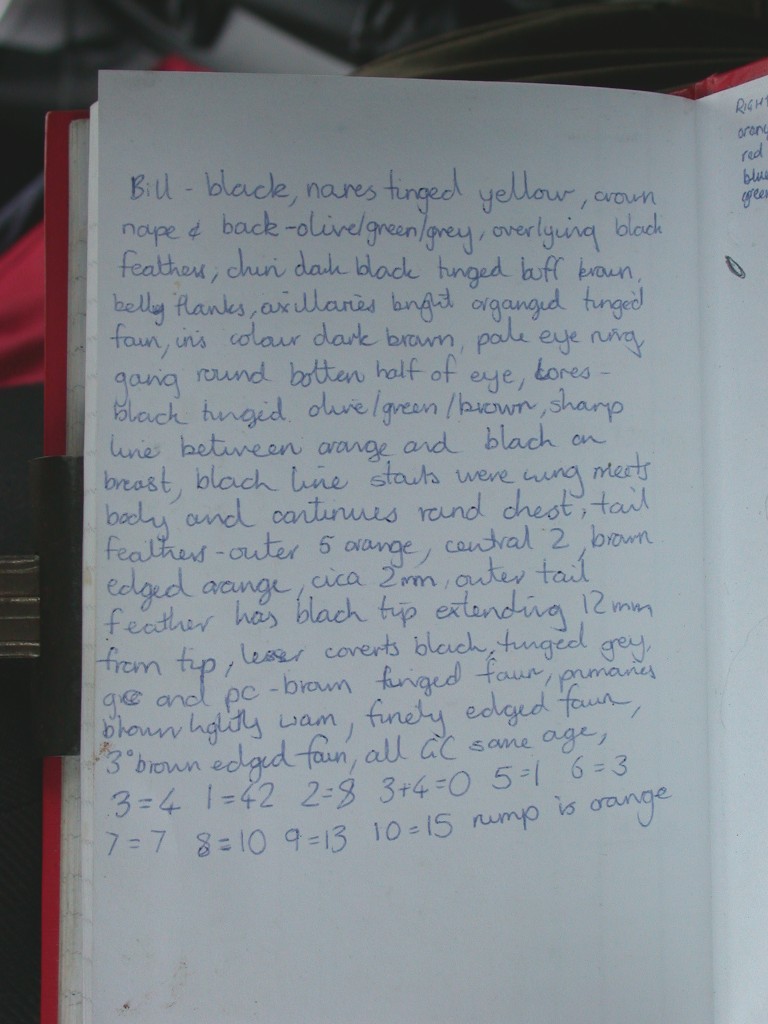 Bill - black, nares tinged yellow, crown
nape & back - olive/green/grey, overlying black
feathers, chin dark black tinged buff brown,
belly flanks, axillaries bright organged tinged
faun, iris colour dark brown, pale eye ring
going round botten half of eye, Lores -
black tinged olive/green/brown, sharp
line between orange and black on
breast, black line starts were wing meets
body and continues round chest, tail
feathers - outer 5 orange, central 2, brown
edged orange, cica 2mm, outer tail
feather has black tip extending 12mm
from tip, lesser coverts black, tinged grey,
and pc - brown fringed faun, primaries
brown lightly warn, finely edged faun,
3° brown edged faun, all GC same age,
3=4 1=42 2=8 3+4=0 5=1 6=3
7=7 8=10 9=13 10=15 rump is orange
RIGHT
red